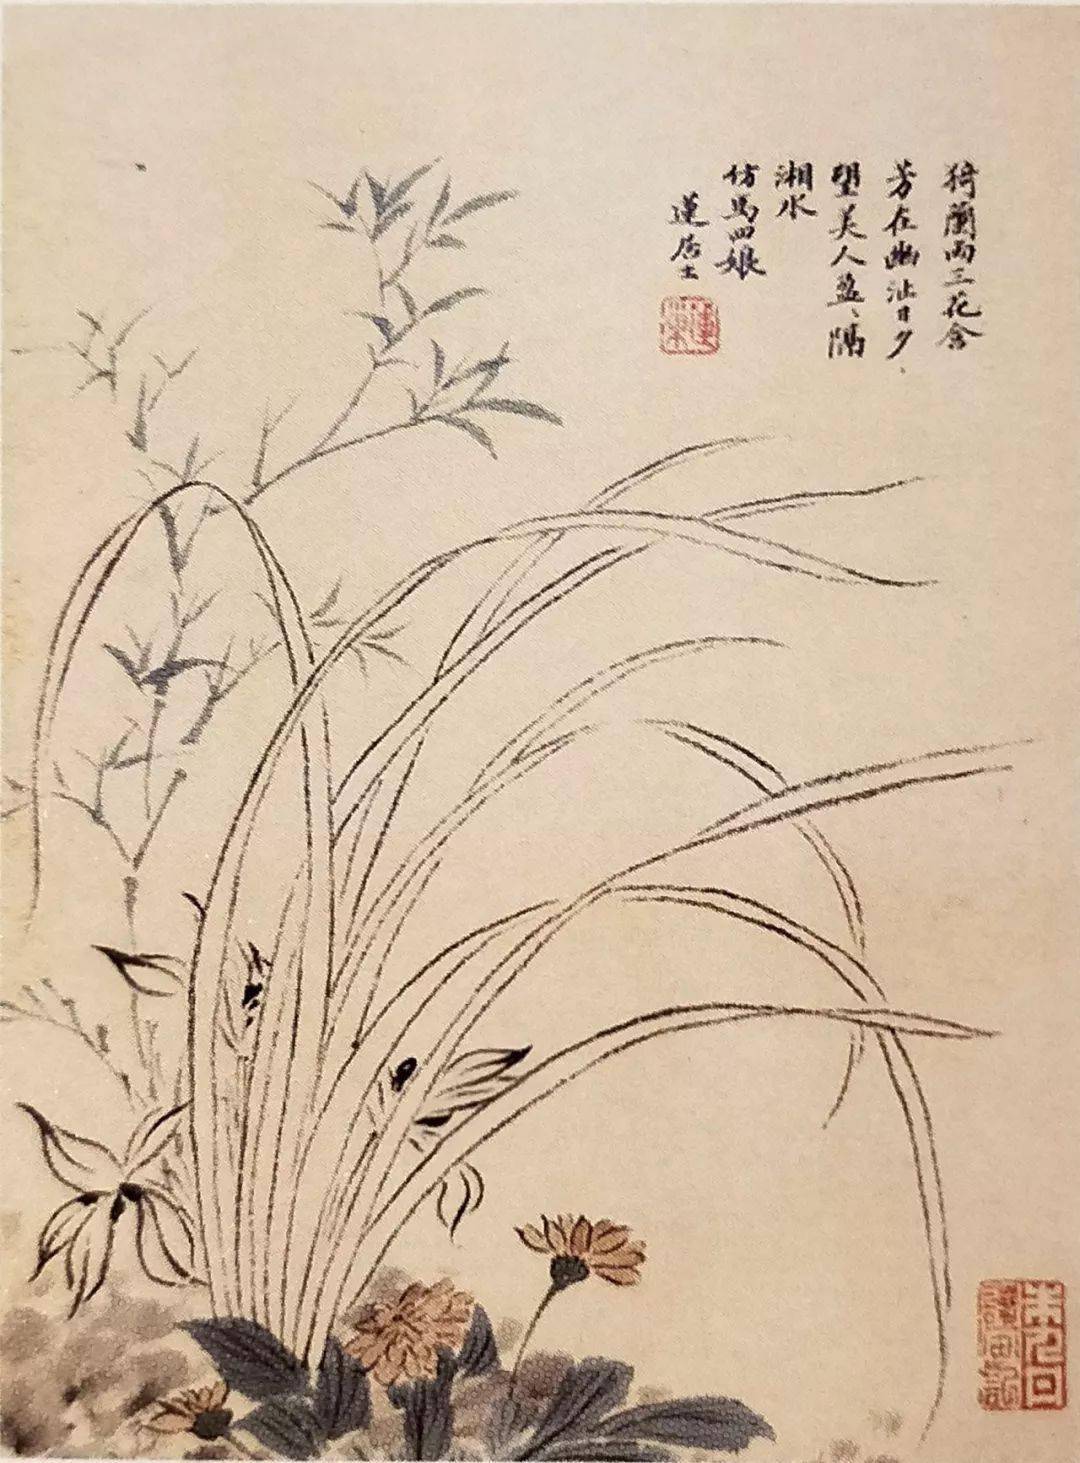 猗蘭兩三花含
芳在幽沚日夕
望美人盈〻隔
湘水
仿馬四娘
蓮居士